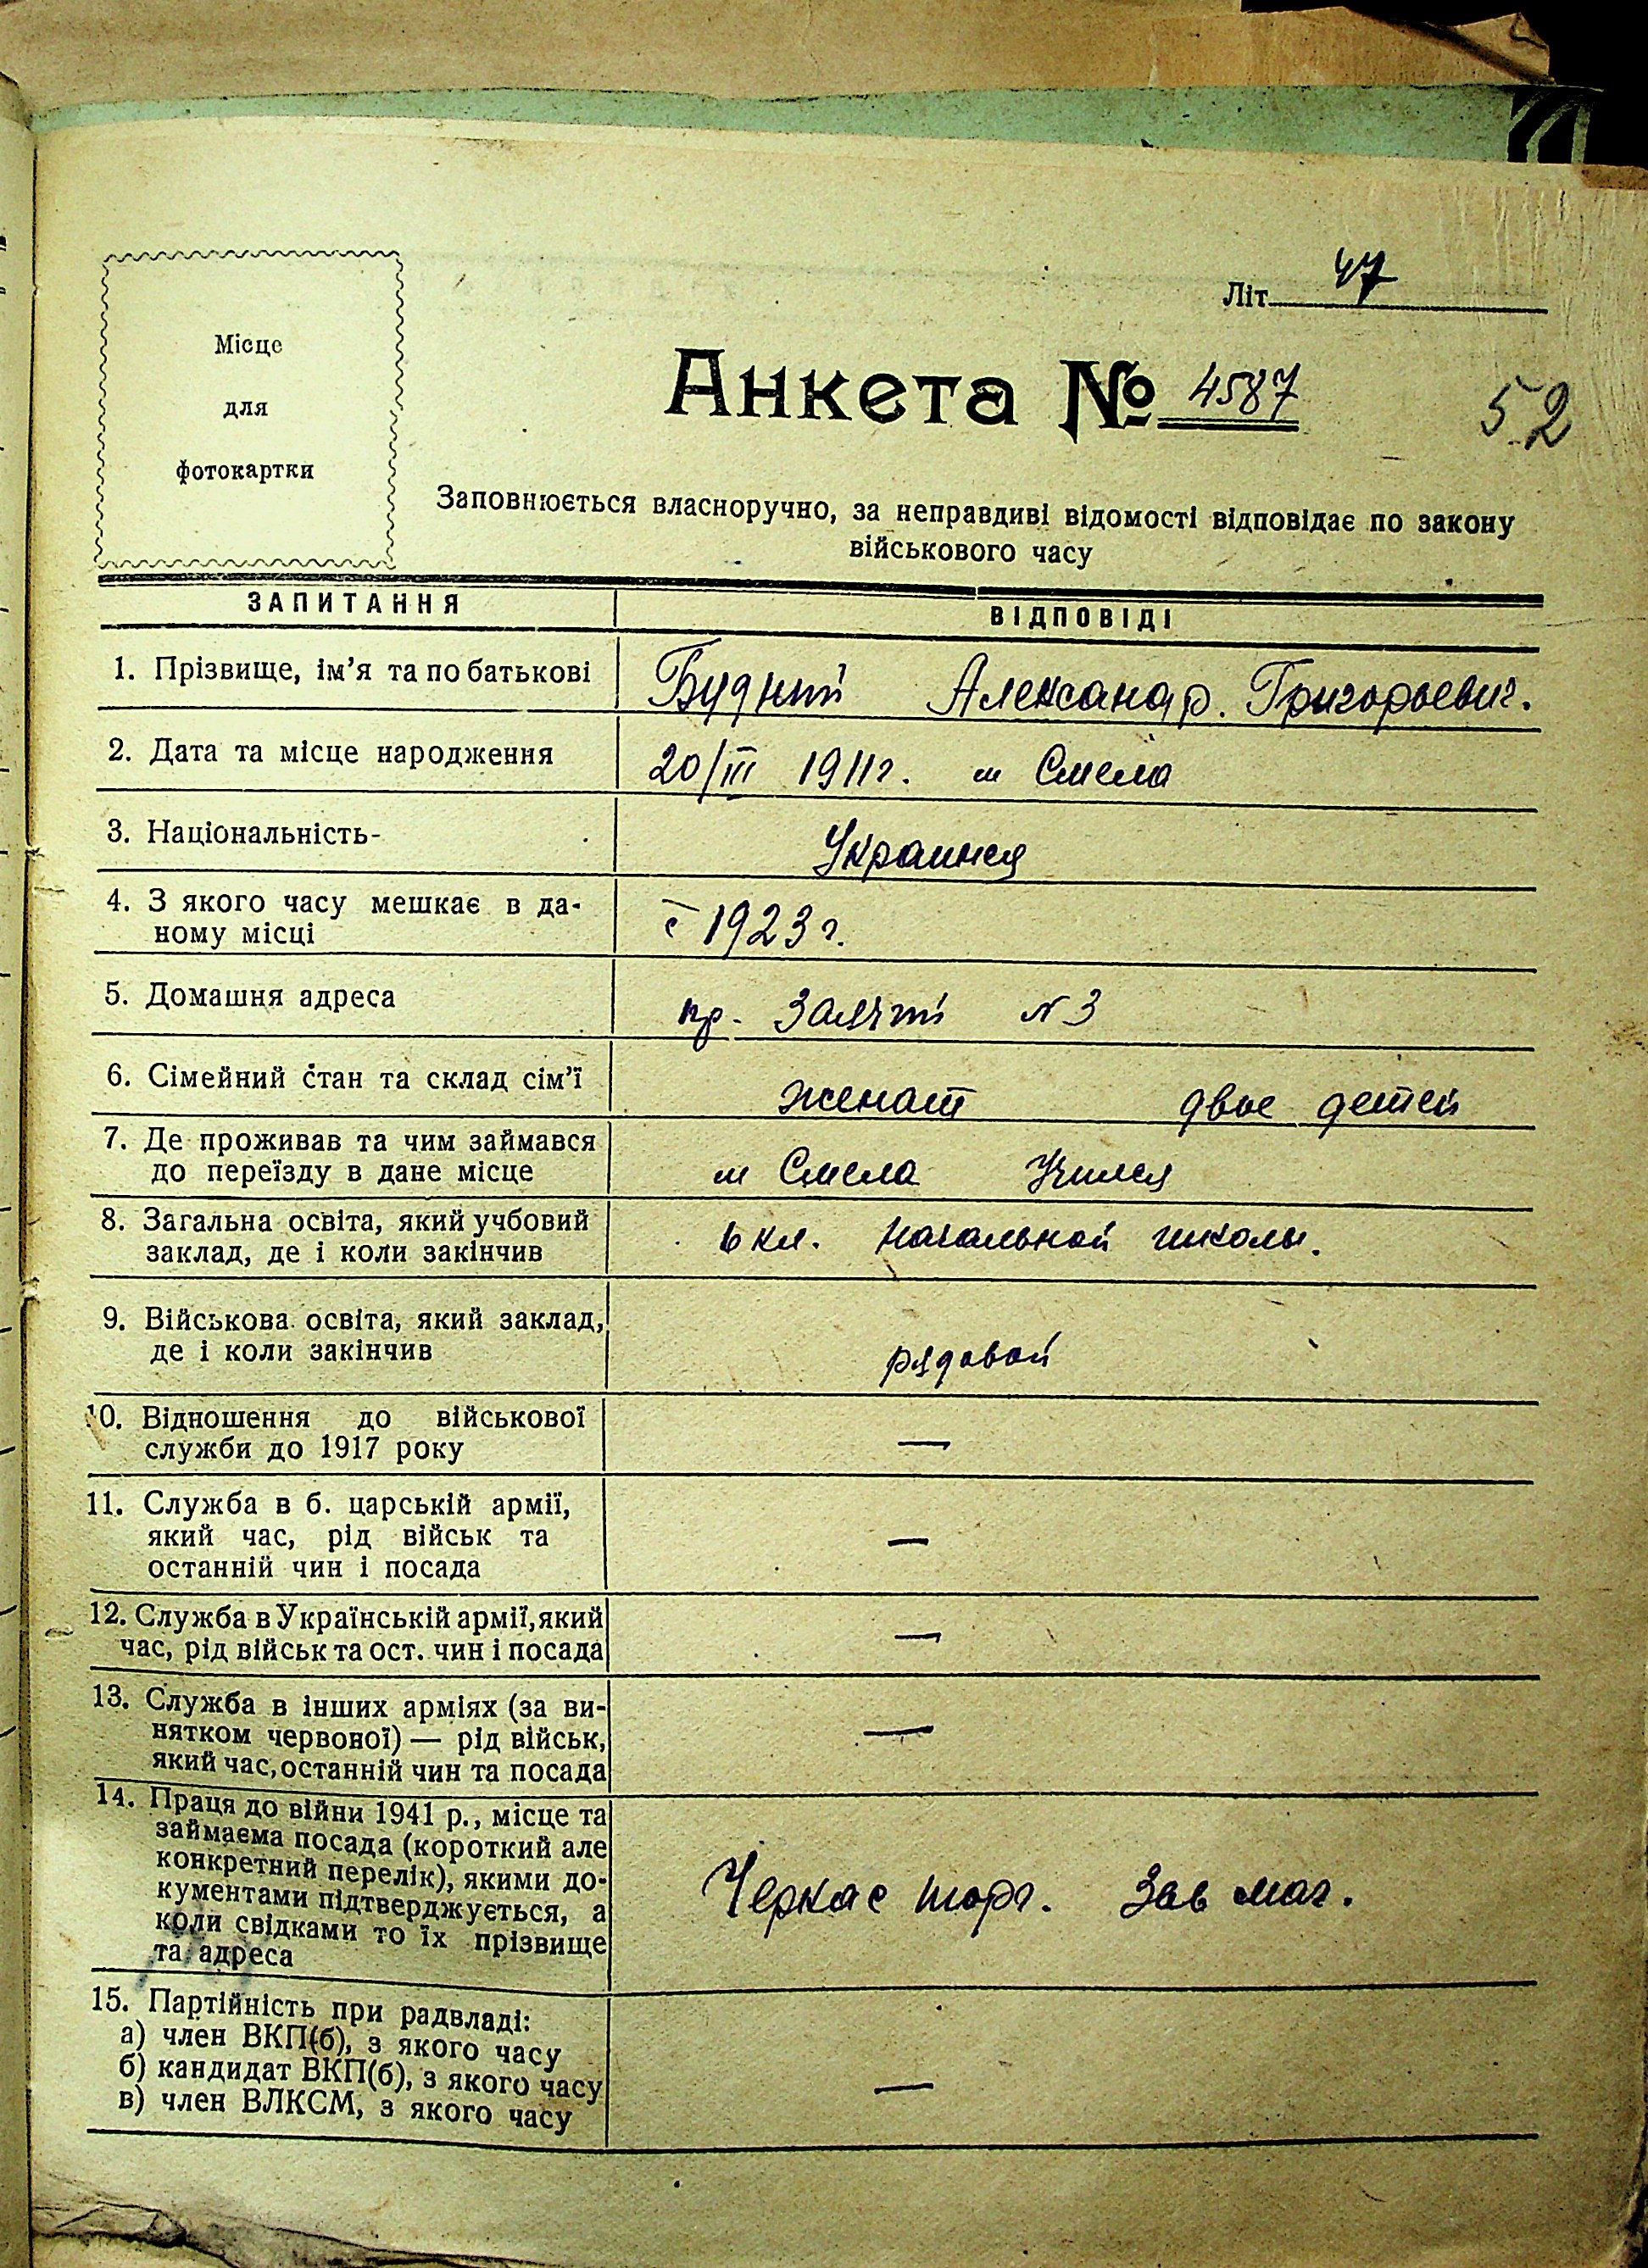 Місце
для
фотокартки
Літ. 47
Анкета № 4587
52
Заповнюється власноручно, за неправдиві відомості відповідає по закону
військового часу
ЗАПИТАННЯ ВІДПОВІДІ
1. Прізвище, ім'я та по батькові Будний Александр. Григорьевич.
2. Дата та місце народження 20/III 1911г. м Смела
3. Національність-
4. З якого часу мешкає в да-
ному місці с 1923 г.
5. Домашня адреса пр. N 3
6. Сімейний стан та склад сім'ї женат двое детей
7. Де проживав та чим займався
до переїзду в дане місце м Смела Учился
8. Загальна освіта, який учбовий
заклад, де і коли закінчив 6 кл. начальной школы.
9. Військова освіта, який заклад,
де і коли закінчив рядовой
10. Відношення до військової
служби до 1917 року —
11. Служба в б. царській армії,
який час, рід військ та
останній чин і посада —
12. Служба в Українській армії, який
час, рід військ та ост. чин і посада —
13. Служба в інших арміях (за ви-
нятком червоної) — рід військ,
який час, останній чин та посада —
14. Праця до війни 1941 р., місце та
займаєма посада (короткий але
конкретний перелік), якими до-
кументами підтверджується, а
коли свідками то їх прізвище
та адреса Черкас торг. Зав маг.
15. Партійність при радвладі:
а) член ВКП(б), з якого часу
б) кандидат ВКП(б), з якого часу
в) член ВЛКСМ, з якого часу —